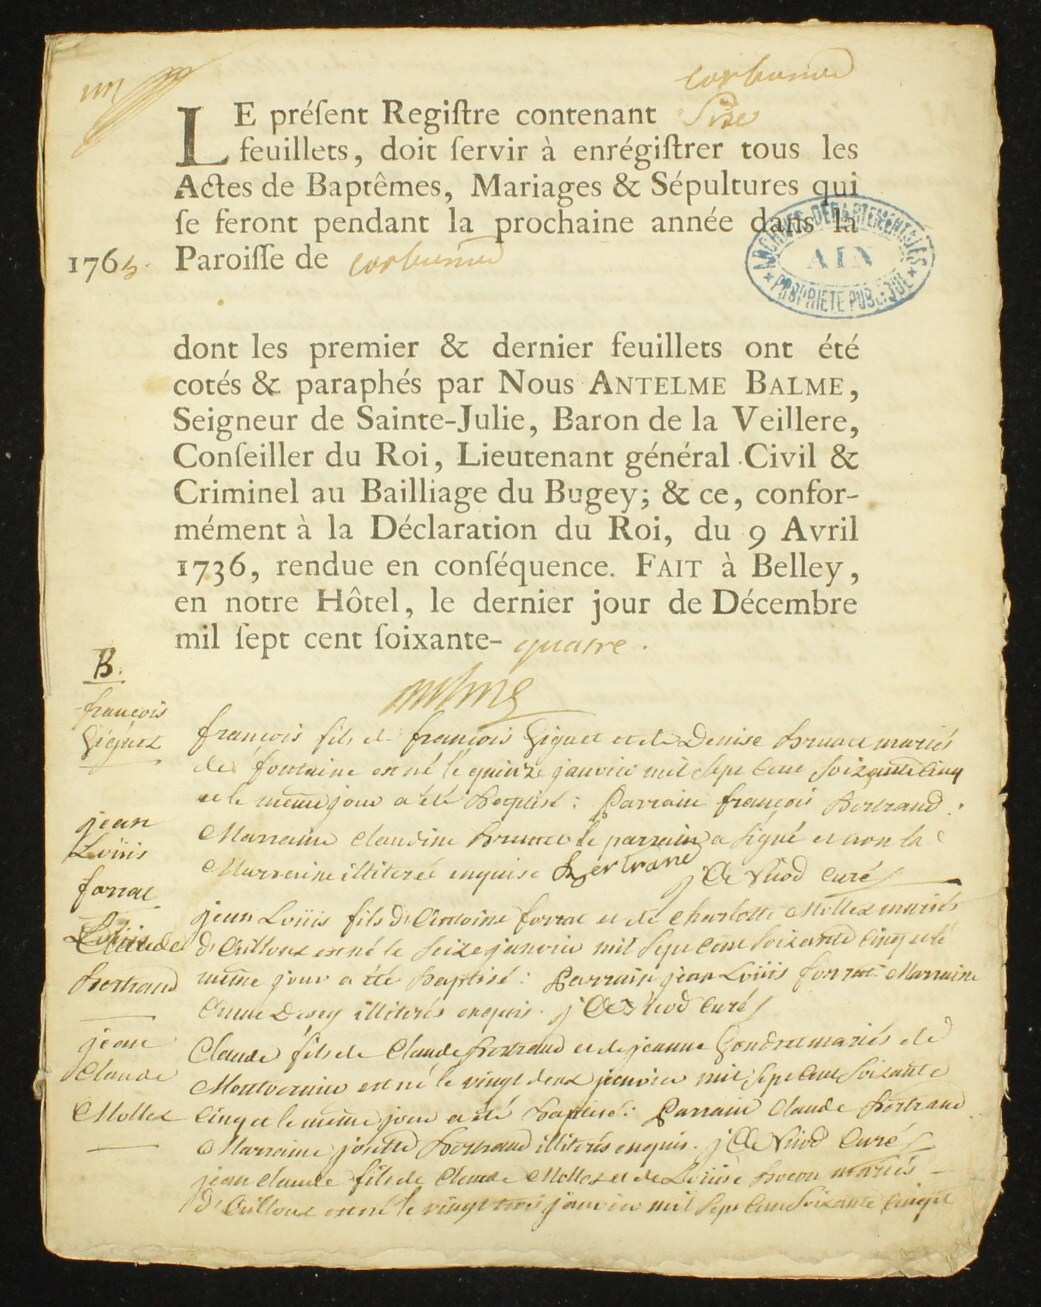 corbonod
un
LE préſent Regiſtre contenant Six
feuillets, doit ſervir à enrégiſtrer tous les
Actes de Baptêmes, Mariages & Sépultures qui
ſe feront pendant la prochaine année dans la
1765. Paroiſſe de corbonod
ARCHIVES DÉPARTEMENTALES
AIN
* PROPRIETE PUBLIQUE *
dont les premier & dernier feuillets ont été
cotés & paraphés par Nous ANTELME BALME,
Seigneur de Sainte-Julie, Baron de la Veillere,
Conſeiller du Roi, Lieutenant général Civil &
Criminel au Bailliage du Bugey; & ce, confor-
mément à la Déclaration du Roi, du 9 Avril
1736, rendue en conſéquence. FAIT à Belley,
en notre Hôtel, le dernier jour de Décembre
mil ſept cent ſoixante-quatre.
B.
françois
françois fils de françois Giguet et de Denise Brunet mariés
de fontaine est né le quinze janvier mil sept cent soixante cinq
et le même jour a été Baptisé : Parrain françois Bertrand :
Marraine Claudine Brunet le parrain a signé et non la
Marraine illiterée enquise Bertrand curé
jean
Loüis
forrat
jean Loüis fils d' forrat et de charlotte Mollex mariés
est né le seize janvier mil sept cent soixante cinq et le
même jour a été Baptisé : Parrain jean Loüis forrat Marraine
illiterés enquis. curé
Claude
Bertrand
Claude fils de Claude Bertrand et de jeanne mariés de
est né le vingt deux janvier mil sept cent soixante
cinq et le même jour a été Baptisé : Parrain Claude Bertrand
Marraine josette Bertrand illiterés enquis. curé
jean
Claude
Mollex
jean claude fils de Claude Mollex et de Loüise mariés
est né le vingt trois janvier mil sept cent soixante cinq et